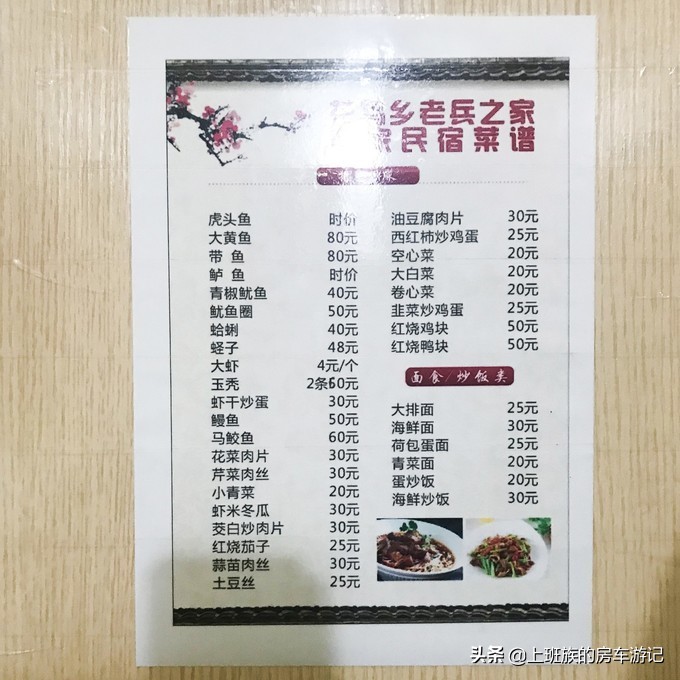 乡老兵之家
民宿菜谱
虎头鱼 时价
大黄鱼 80元
带 鱼 80元
鲈 鱼 时价
青椒鱿鱼 40元
鱿鱼圈 50元
蛤蜊 40元
蛏子 48元
大虾 4元/个
玉秃 2条60元
虾干炒蛋 30元
鳗鱼 50元
马鲛鱼 60元
花菜肉片 30元
芹菜肉丝 30元
小青菜 20元
虾米冬瓜 30元
茭白炒肉片 30元
红烧茄子 25元
蒜苗肉丝 30元
土豆丝 25元
油豆腐肉片 30元
西红柿炒鸡蛋 25元
空心菜 20元
大白菜 20元
卷心菜 20元
韭菜炒鸡蛋 25元
红烧鸡块 50元
红烧鸭块 50元
面食/炒饭类
大排面 25元
海鲜面 30元
荷包蛋面 25元
青菜面 20元
蛋炒饭 20元
海鲜炒饭 30元
头条 @上班族的房车游记